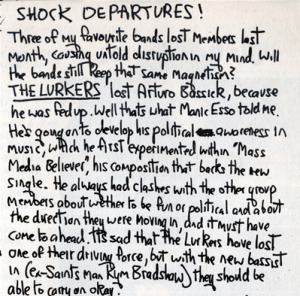 SHOCK DEPARTURES!
Three of my favourite bands lost members last
month, causing untold disruption in my mind. Will
the bands still keep that same magnetism?
THE LURKERS lost Arturo Bassick, because
he was fed up. Well thats what Manic Esso told me.
He's going to develop his political awareness in
music, which he first experimented within "Mass
Media Believer", his composition that backs the new
single. He always had clashes with the other group
members about wether to be fun or political and about
the direction they were moving in, and it must have
come to a head. It's sad that the Lurkers have lost
one of their driving force, but with the new bassist
in (ex-Saints man Kym Bradshaw) they should be
able to carry on okay.